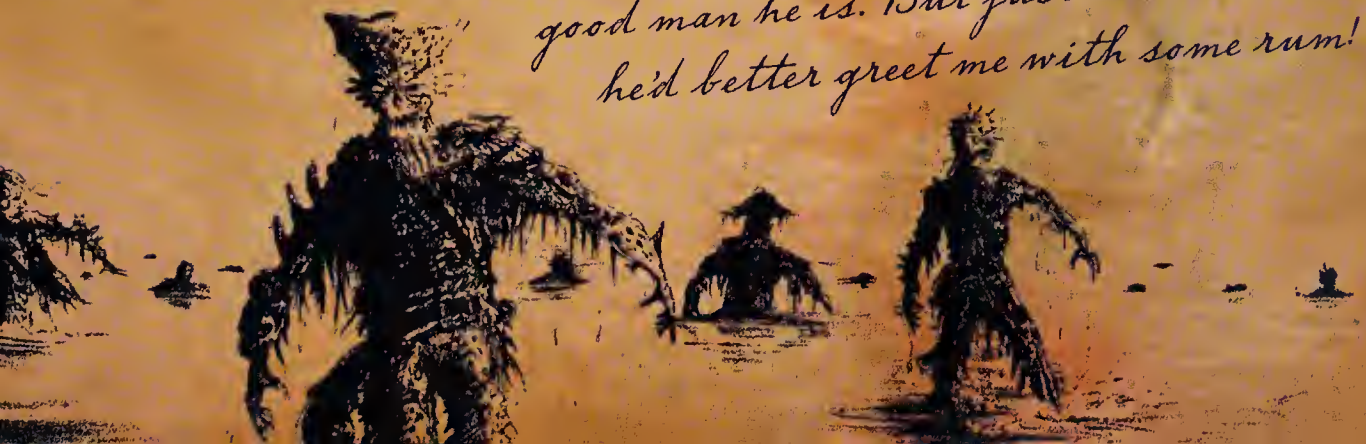 good man he is. But
he'd better greet me with some rum!